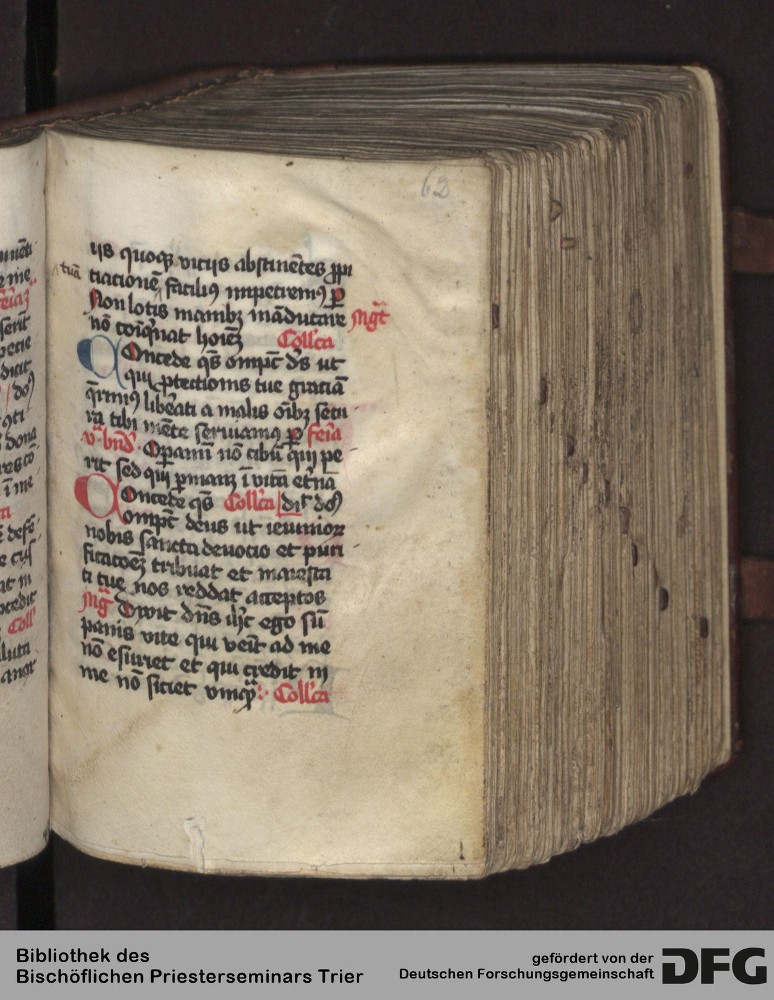 62
iis quoq; vicijs abstinētes ꝓpi
tuā
ciacionē faciliꝰ impetremꝰ ꝑ
Non lotis manibꝫ māducare Mgt̄
nō coīq̄nat hoīeꝫ Coll'cta
Oncede qs̄ om̄pt̄ ds̄ ut
qui ꝓtectionis tue graciā
q̄rimꝰ lib̄ati a malis oībꝫ secu
ra tibi mēte seruiamꝰ ꝑ feria
v. bn̄d. Operamī nō cibū qui pe
rit sed qui ꝑmanꝫ ī vitā et̄nā
Oncede qs̄ Coll'cta
om̄pt̄ deus ut ieiunioꝝ
nobis sancta deuocio et puri
ficacoēꝫ tribuat et maiesta
ti tue nos reddat acceptos
Mḡ Dixit dn̄s ih̄c ego sū
panis vite qui ven̄it ad me
nō esuriet et qui credit in
me nō siciet vnqᷓ: Coll'cta
Bibliothek des
Bischöflichen Priesterseminars Trier
gefördert von der
Deutschen Forschungsgemeinschaft
DFG